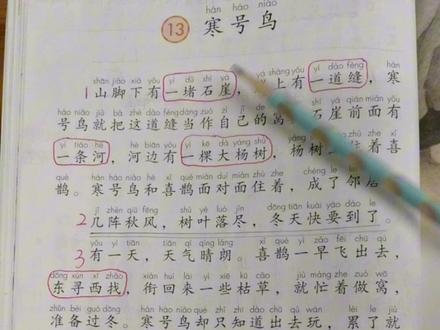 hán hào niǎo
13 寒号鸟
shān jiǎo xià yǒu yì dǔ shí yá yá shàng yǒu yí dào fèng hán
1山脚下有一堵石崖，上有一道缝，寒
hào niǎo jiù bǎ zhè dào fèng dàng zuò zì jǐ de wō shí yá qián miàn yǒu
号鸟就把这道缝当作自己的窝 石崖前面有
yì tiáo hé hé biān yǒu yì kē dà yáng shù yáng shù zhù zhe xǐ
一条河，河边有一棵大杨树，杨树住着喜
què hán hào niǎo hé xǐ què miàn duì miàn zhù zhe chéng le lín jū
鹊。寒号鸟和喜鹊面对面住着，成了邻居
jǐ zhèn qiū fēng shù yè luò jìn dōng tiān kuài yào dào le
2几阵秋风，树叶落尽，冬天快要到了。
yǒu yì tiān tiān qì qíng lǎng xǐ què yì zǎo fēi chū qù
3有一天，天气晴朗。喜鹊一早飞出去，
dōng xún xī zhǎo xián huí lái yì xiē kū cǎo jiù máng zhe zuò wō
东寻西找，衔回来一些枯草，就忙着做窝，
zhǔn bèi guò dōng hán hào niǎo què zhǐ zhī dào chū qù wán lèi le jiù
准备过冬。寒号鸟却只知道出去玩，累了就